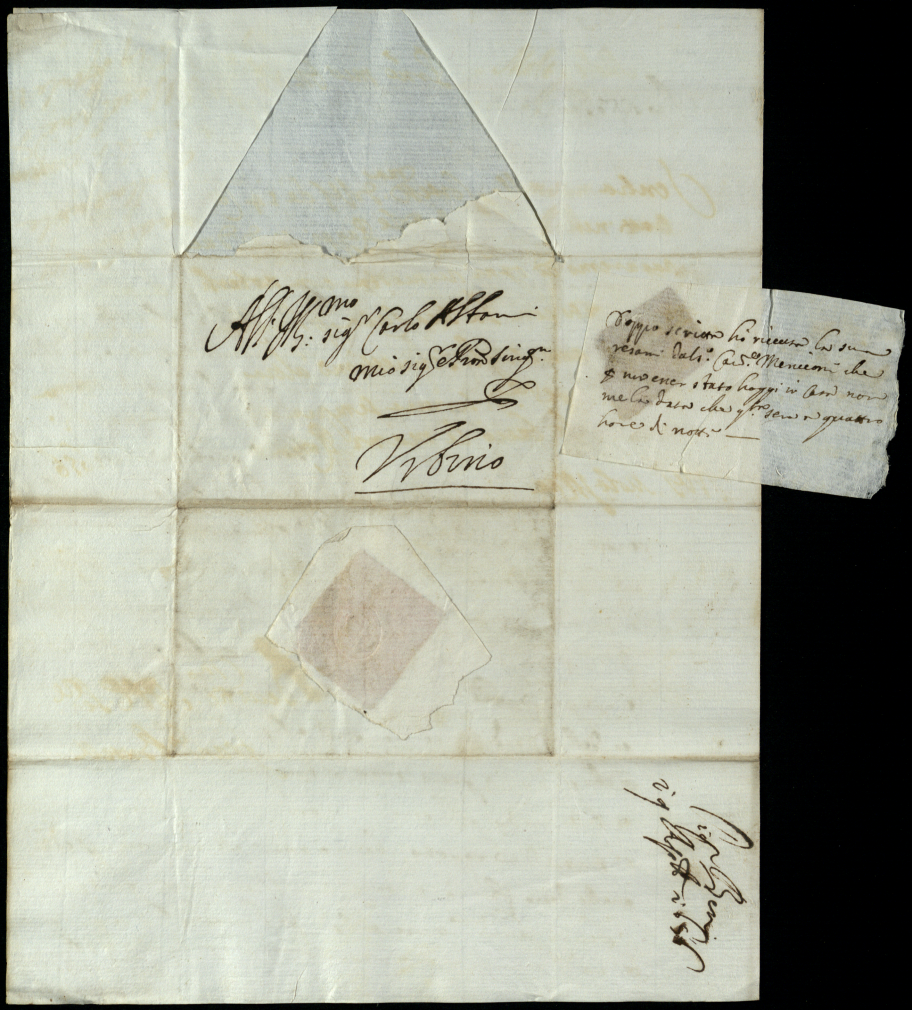 All' Ill:mo sig.r Carlo Albani
mio sig.re e Pron sing.re
Urbino
Doppo scritta hò riceuta la sua
resami dal s.r Cau.re Meniconi che
p non esser stato hoggi in casa non
me la data che q.ta sera a quattro
hore di notte
19 Agosto